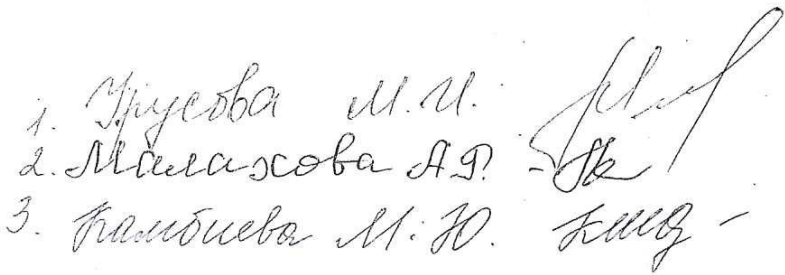 1. Урусова М.И.
2. Малахова А.Ф.
3. Камбиева М.Ю.